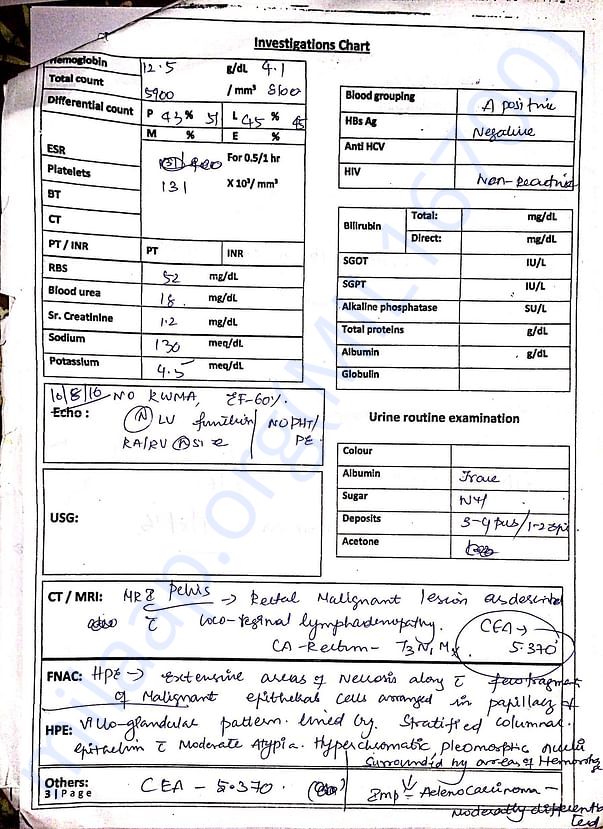 Investigations Chart
Hemoglobin 12.5 g/dL 4.1
Total count 5900 / mm³ 8100
Differential count P 43% 51 L 45% 45
M % E %
ESR For 0.5/1 hr
Platelets 131 X 10³/ mm³
BT
CT
PT / INR PT INR
RBS 52 mg/dL
Blood urea 18 mg/dL
Sr. Creatinine 1.2 mg/dL
Sodium 130 meq/dL
Potassium 4.5 meq/dL
Blood grouping A positive
HBs Ag Negative
Anti HCV
HIV Non-Reactive
Bilirubin Total: mg/dL
Direct: mg/dL
SGOT IU/L
SGPT IU/L
Alkaline phosphatase SU/L
Total proteins g/dL
Albumin g/dL
Globulin
10/8/16 NO RWMA, EF-60%.
Echo : N LV function / NO PHT/
RA/RV N size PE.
USG:
Urine routine examination
Colour
Albumin Trace
Sugar Nil
Deposits 3-4 pus/1-2 epi
Acetone
CT / MRI: MRI Pelvis → Rectal Malignant lesion as described
c̄ loco-reginal lymphadenopathy. CEA →
CA-Rectum - T3 N1 Mx. 5.370
FNAC: HPE → extensive areas of Necrosis along c̄ few fragment
of Malignant epithelial cells arranged in papillary &
HPE: Villo-glandular pattern. lined by. Stratified columnar
epithelium c̄ Moderate Atypia. Hyperchromatic, pleomorphic nuclei
Surrounded by areas of Hemorrhage
Others: CEA - 5.370 Imp → Adenocarcinoma -
3 | Page moderately differentiated
mijaap.org(MIL167001)